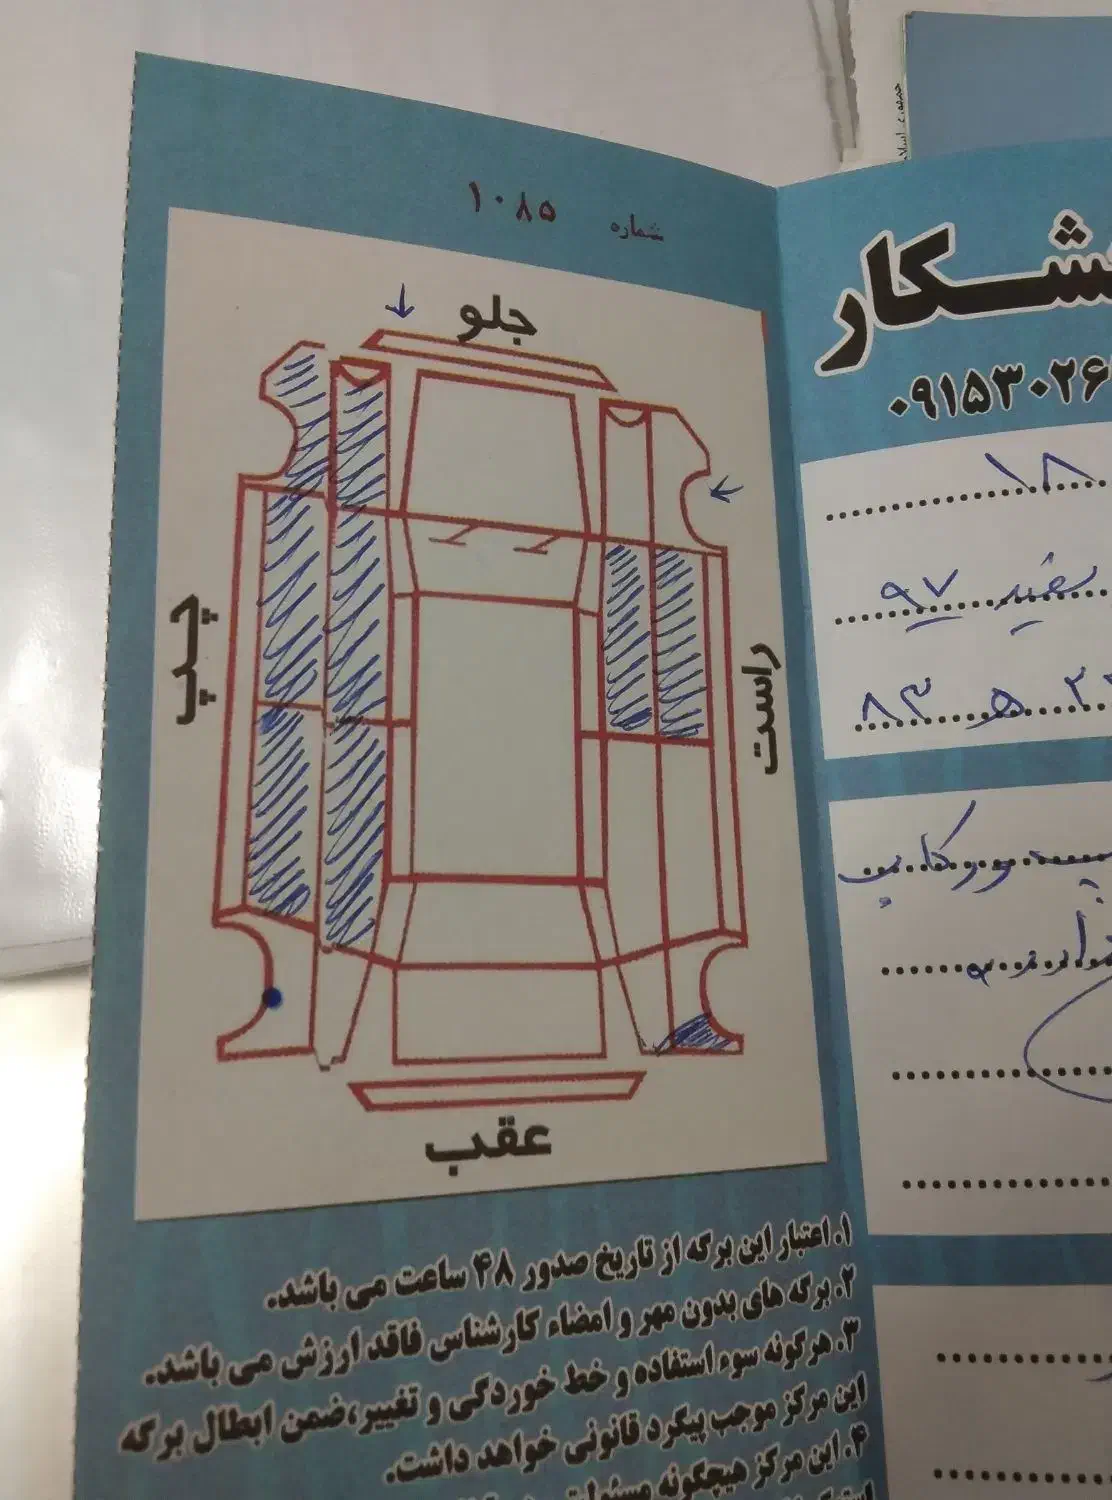 شماره ۱۰۸۵
جلو
چپ
راست
عقب
۱.اعتبار این برگه از تاریخ صدور ۴۸ ساعت می باشد.
۲.برگه های بدون مهر و امضاء کارشناس فاقد ارزش می باشد.
۳.هرگونه سوء استفاده و خط خوردگی و تغییر،ضمن ابطال برگه
این مرکز موجب پیگرد قانونی خواهد داشت.
۴.این مرکز هیچگونه
شکار
۰۹۱۵۳۰۲۶
۱۸
سفید ۹۷
۸۳